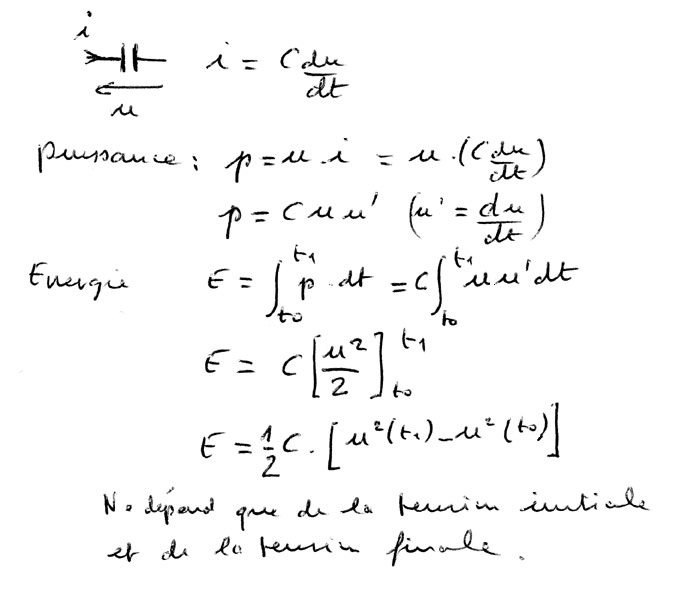 i
i = C du/dt
u
puissance : p = u . i = u . (C du/dt)
p = C u u' (u' = du/dt)
Energie E = ∫t0t1 p dt = C ∫t0t1 u u' dt
E = C [u²/2]t0t1
E = 1/2 C . [u²(t1) - u²(t0)]
Ne dépend que de la tension initiale
et de la tension finale.